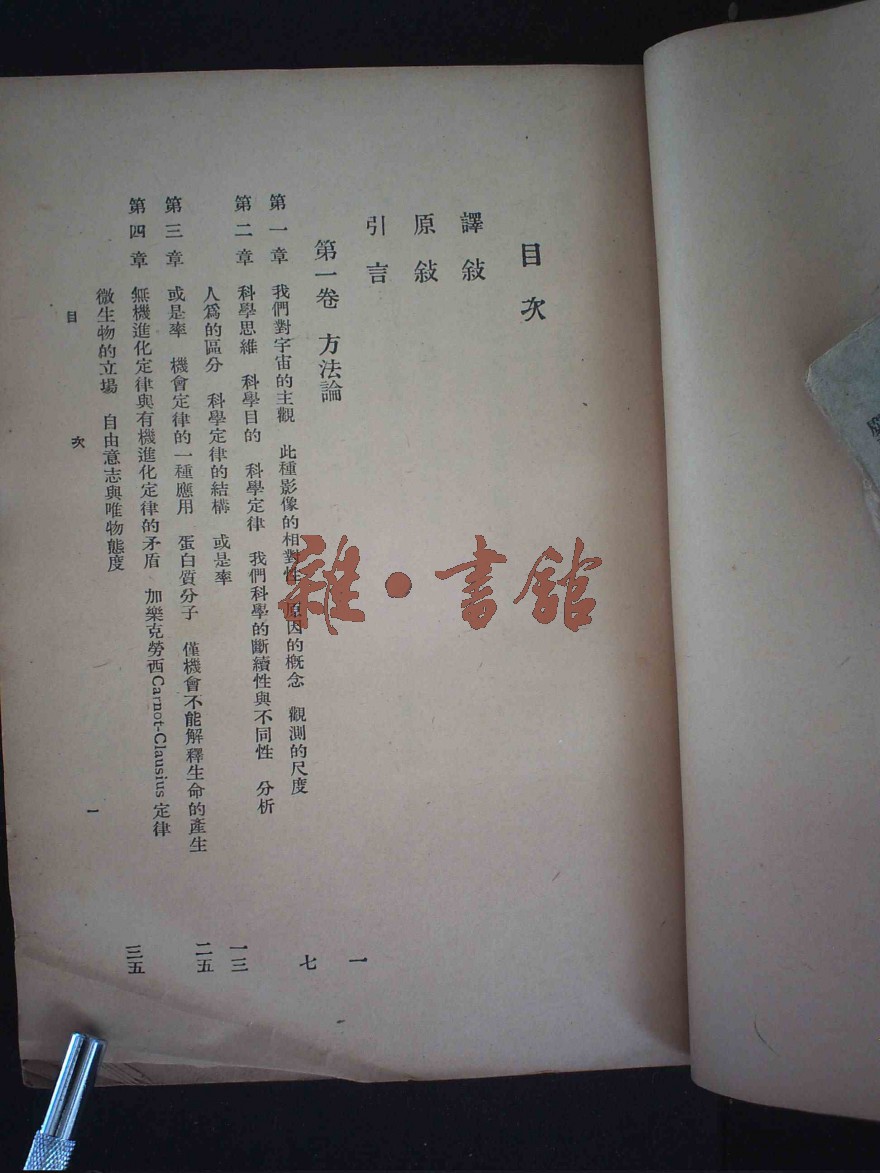 目次
譯敍
原敍
引言 一
第一卷 方法論
第一章 我們對宇宙的主觀 此種影像的相對性 原因的概念 觀測的尺度 七
第二章 科學思維 科學目的 科學定律 我們科學的斷續性與不同性 分析
人爲的區分 科學定律的結構 或是率 一三
第三章 或是率 機會定律的一種應用 蛋白質分子 僅機會不能解釋生命的產生 二五
第四章 無機進化定律與有機進化定律的矛盾 加樂克勞西Carnot-Clausius定律
微生物的立場 自由意志與唯物態度 三五
目次 一
雜·書館